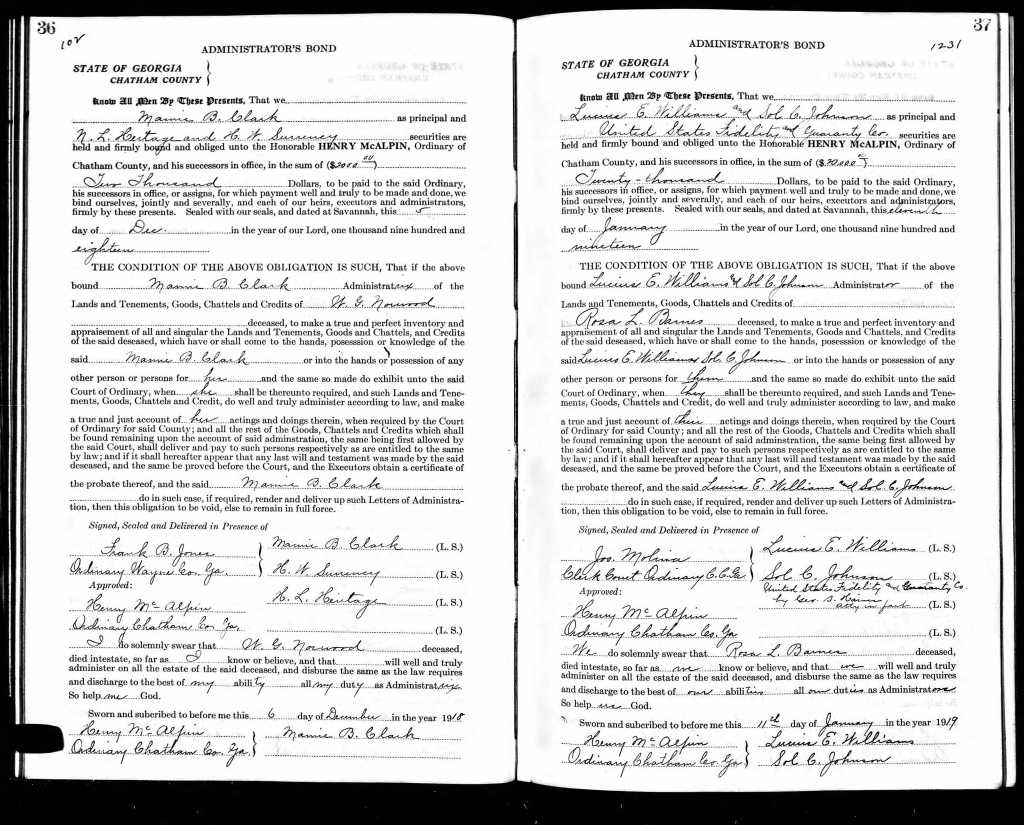 36
102
ADMINISTRATOR'S BOND
STATE OF GEORGIA
CHATHAM COUNTY
Know All Men By These Presents, That we
Mamie B. Clark as principal and
N. L. Heritage and H. W. Surrency securities are
held and firmly bound and obliged unto the Honorable HENRY McALPIN, Ordinary of
Chatham County, and his successors in office, in the sum of ($2000 00)
Two Thousand Dollars, to be paid to the said Ordinary,
his successors in office, or assigns, for which payment well and truly to be made and done, we
bind ourselves, jointly and severally, and each of our heirs, executors and administrators,
firmly by these presents. Sealed with our seals, and dated at Savannah, this 5
day of Dec. in the year of our Lord, one thousand nine hundred and
eighteen
THE CONDITION OF THE ABOVE OBLIGATION IS SUCH, That if the above
bound Mamie B. Clark Administratrix of the
Lands and Tenements, Goods, Chattels and Credits of W. G. Norwood
deceased, to make a true and perfect inventory and
appraisement of all and singular the Lands and Tenements, Goods and Chattels, and Credits
of the said deceased, which have or shall come to the hands, posession or knowledge of the
said Mamie B. Clark or into the hands or possession of any
other person or persons for her and the same so made do exhibit unto the said
Court of Ordinary, when she shall be thereunto required, and such Lands and Tene-
ments, Goods, Chattels and Credit, do well and truly administer according to law, and make
a true and just account of her actings and doings therein, when required by the Court
of Ordinary for said County; and all the rest of the Goods, Chattels and Credits which shall
be found remaining upon the account of said adminstration, the same being first allowed by
the said Court, shall deliver and pay to such persons respectively as are entitled to the same
by law; and if it shall hereafter appear that any last will and testament was made by the said
deseased, and the same be proved before the Court, and the Executors obtain a certificate of
the probate thereof, and the said Mamie B. Clark
do in such case, if required, render and deliver up such Letters of Administra-
tion, then this obligation to be void, else to remain in full force.
Signed, Sealed and Delivered in Presence of
Frank B. Jones Mamie B. Clark (L. S.)
Ordinary Wayne Co. Ga. H. W. Surrency (L. S.)
Approved:
Henry McAlpin H. L. Heritage (L. S.)
Ordinary Chatham Co. Ga. (L. S.)
I do solemnly swear that W. G. Norwood deceased,
died intestate, so far as I know or believe, and that will well and truly
administer on all the estate of the said deceased, and disburse the same as the law requires
and discharge to the best of my ability all my duty as Administratrix
So help me God.
Sworn and suberibed to before me this 6 day of December in the year 1918
Henry McAlpin Mamie B. Clark
Ordinary Chatham Co. Ga.
37
1231
ADMINISTRATOR'S BOND
STATE OF GEORGIA
CHATHAM COUNTY
Know All Men By These Presents, That we
Lucius E. Williams and Sol. C. Johnson as principal and
United States Fidelity and Guaranty Co. securities are
held and firmly bound and obliged unto the Honorable HENRY McALPIN, Ordinary of
Chatham County, and his successors in office, in the sum of ($20,000 00)
Twenty-thousand Dollars, to be paid to the said Ordinary,
his successors in office, or assigns, for which payment well and truly to be made and done, we
bind ourselves, jointly and severally, and each of our heirs, executors and administrators,
firmly by these presents. Sealed with our seals, and dated at Savannah, this eleventh
day of January in the year of our Lord, one thousand nine hundred and
nineteen
THE CONDITION OF THE ABOVE OBLIGATION IS SUCH, That if the above
bound Lucius E. Williams and Sol C. Johnson Administrator of the
Lands and Tenements, Goods, Chattels and Credits of
Rosa L. Barnes deceased, to make a true and perfect inventory and
appraisement of all and singular the Lands and Tenements, Goods and Chattels, and Credits
of the said deceased, which have or shall come to the hands, posession or knowledge of the
said Lucius E. Williams & Sol. C. Johnson or into the hands or possession of any
other person or persons for them and the same so made do exhibit unto the said
Court of Ordinary, when they shall be thereunto required, and such Lands and Tene-
ments, Goods, Chattels and Credit, do well and truly administer according to law, and make
a true and just account of their actings and doings therein, when required by the Court
of Ordinary for said County; and all the rest of the Goods, Chattels and Credits which shall
be found remaining upon the account of said adminstration, the same being first allowed by
the said Court, shall deliver and pay to such persons respectively as are entitled to the same
by law; and if it shall hereafter appear that any last will and testament was made by the said
deseased, and the same be proved before the Court, and the Executors obtain a certificate of
the probate thereof, and the said Lucius E. Williams and Sol. C. Johnson
do in such case, if required, render and deliver up such Letters of Administra-
tion, then this obligation to be void, else to remain in full force.
Signed, Sealed and Delivered in Presence of
Jos. Molina Lucius E. Williams (L. S.)
Clerk Court Ordinary C.C.Ga Sol C. Johnson (L. S.)
Approved: United States Fidelity and Guaranty Co.
by Geo. S. Haines
Henry McAlpin atty in fact (L. S.)
Ordinary Chatham Co. Ga (L. S.)
We do solemnly swear that Rosa L. Barnes deceased,
died intestate, so far as we know or believe, and that we will well and truly
administer on all the estate of the said deceased, and disburse the same as the law requires
and discharge to the best of our abilities all our duties as Administrators
So help us God.
Sworn and suberibed to before me this 11th day of January in the year 1919
Henry McAlpin Lucius E. Williams
Ordinary Chatham Co. Ga Sol C. Johnson